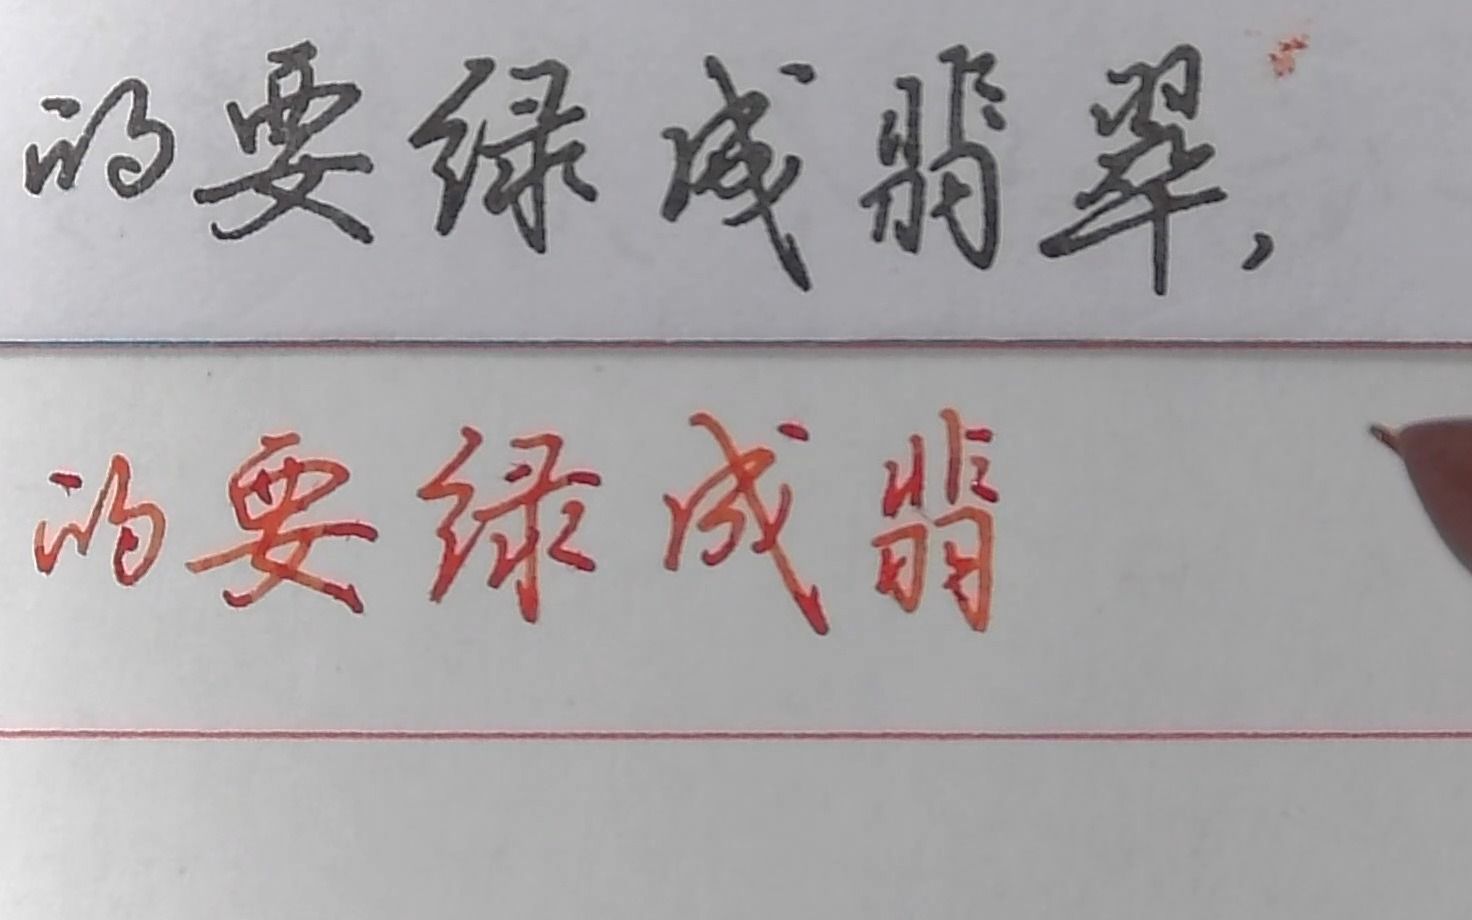 的要绿成翡翠，
的要绿成翡